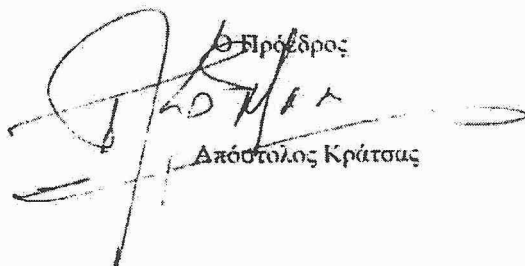 Ο Πρόεδρος
Απόστολος Κράτσας